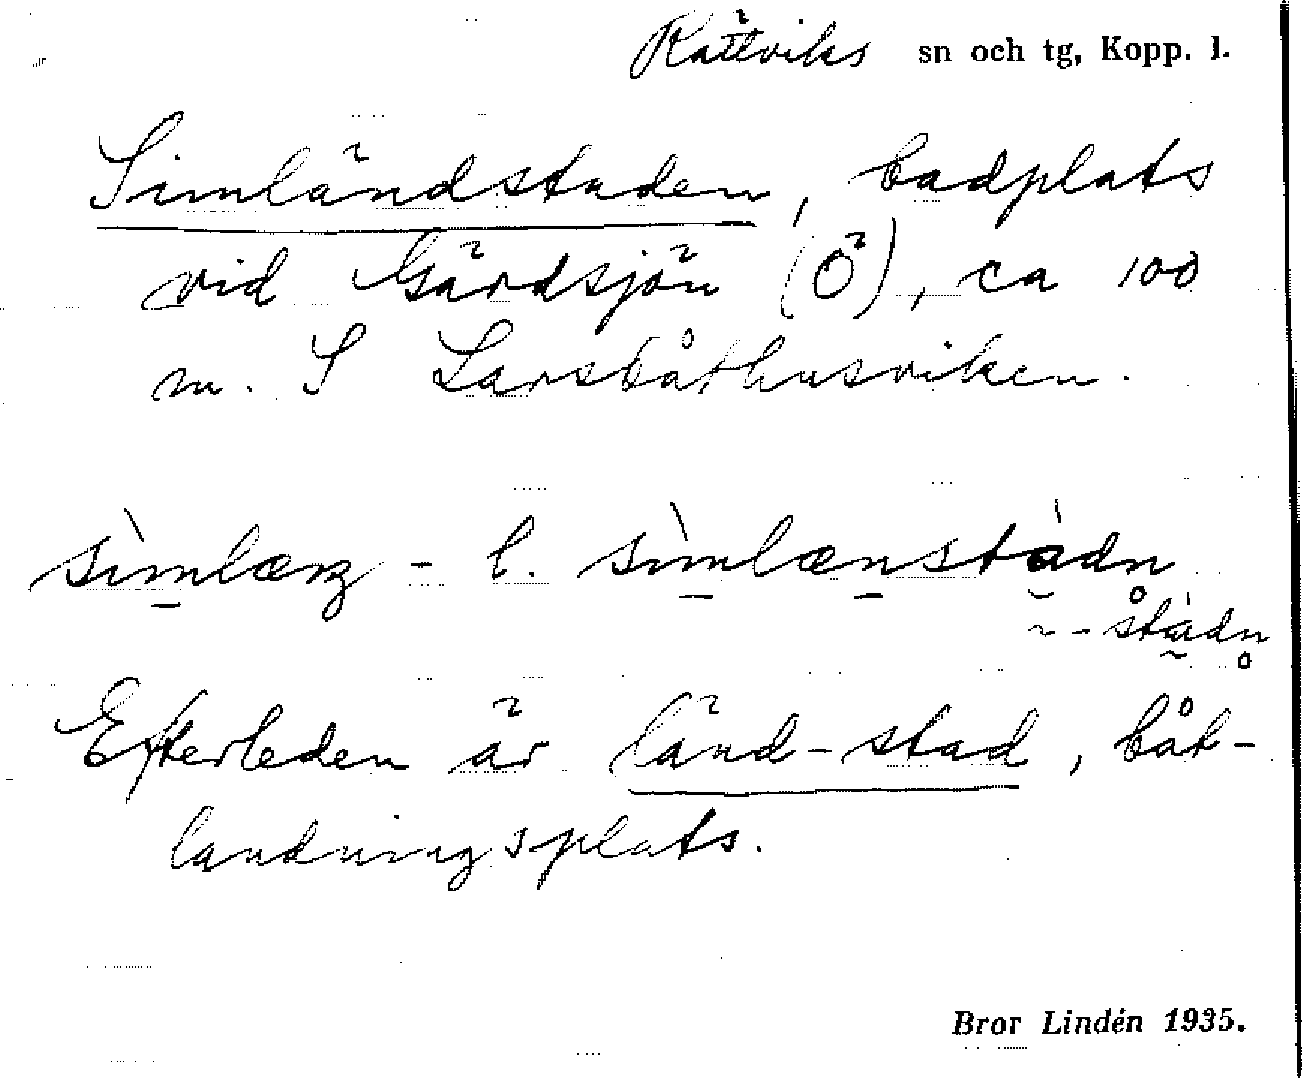 Rättviks sn och tg, Kopp. l.
Simländstaden, badplats
vid Gärdsjön (Ö), ca 100
m. S Larsbåthusviken.
sìmlænz - l. sìmlænstàdn
~ - stàdn
Efterleden är länd-stad, båt-
landningsplats.
Bror Lindén 1935.